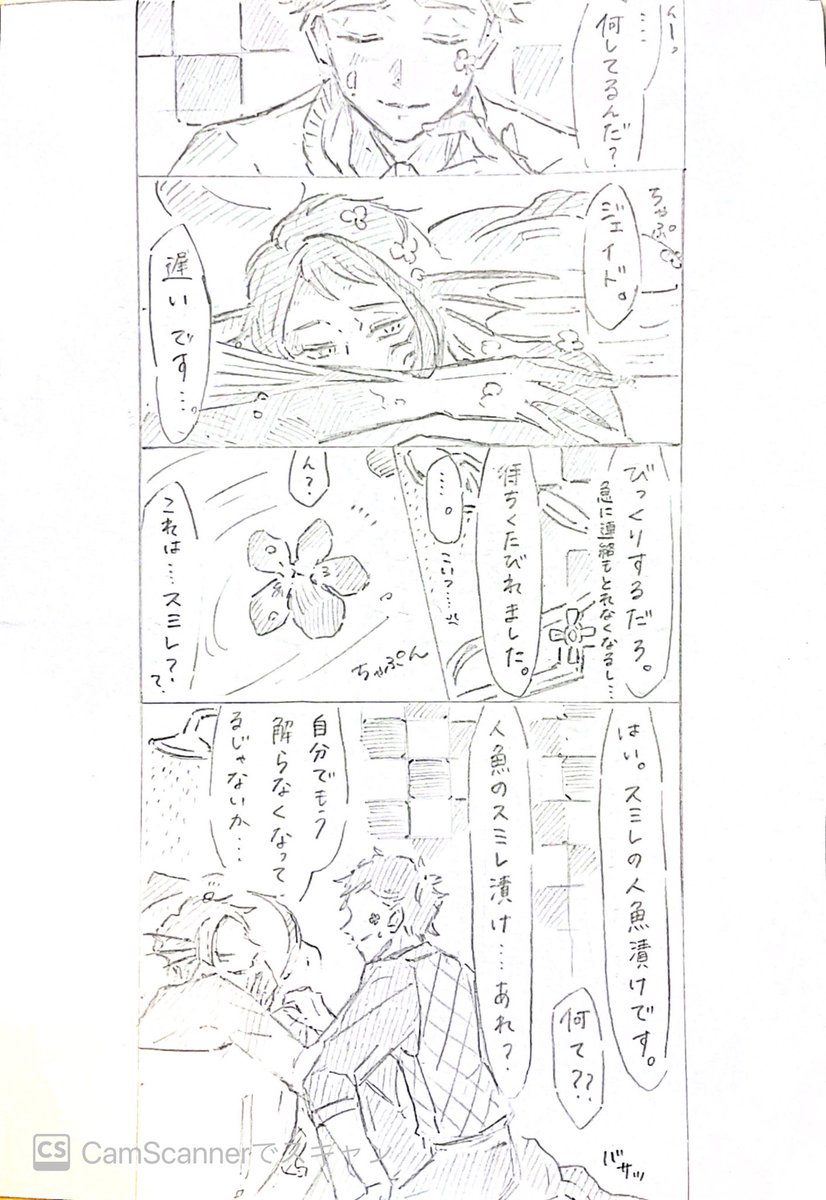 んー。
……
何してるんだ?
ちゃぷ
ジェイド。
遅いです…。
びっくりするだろ。
急に連絡もとれなくなるし…
待ちくたびれました。
……。
こいつ……
ん?
ちゃぷん
これは…スミレ?
て、
はい。スミレの人魚漬けです。
何て??
人魚のスミレ漬け…あれ?
自分でもう
解らなくなって
るじゃないか…
バサッ
CS CamScannerでスキャン